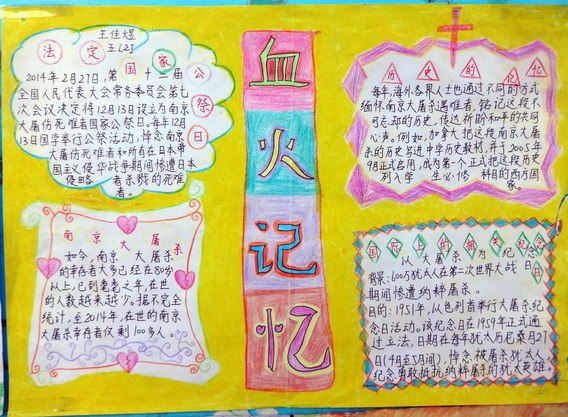 王佳煜
五(2)
法定国家公祭日
2014年2月27日,第十二届
全国人民代表大会常务委员会第七
次会议决定将12月13日设立为南京
大屠伤死难者国家公祭日。每年12月
13日国学举行公祭活动,悼念南京
大屠伤死难者和所有在日本帝
国主义侵华战争期间惨遭日本
侵略者杀戮的死难
者。
南京大屠杀
如今,南京大屠杀
的幸存者大多已经在80岁
以上,已到耄耋之年,在世
的人数越来越少。据不完全
统计,至2014年,在世的南京
大屠杀幸存者仅剩100多人。
血
火
记
忆
历史的记忆
每年,海外各界人士也通过不同的方式
缅怀南京大屠杀遇难者,铭记这段不
可忘却的历史,传达祈盼和平的共同
心声。例如,加拿大把这段南京大屠
杀的历史写进中学历史教材,并于2005年
9月正式启用,成为第一个正式把这段历史
列入学生必修科目的西方国
家。
国际上的相关纪念日
以大屠杀为纪念日
背景:600万犹太人在第二次世界大战
期间惨遭纳粹屠杀。
目的:1951年,以色列首举行大屠杀纪
念日活动。该纪念日在1959年正式通
过立法,日期在每年犹太历尼桑月27
日(4月至5月间),悼念被屠杀犹太人,
纪念勇敢抵抗纳粹屠杀的犹太英雄。